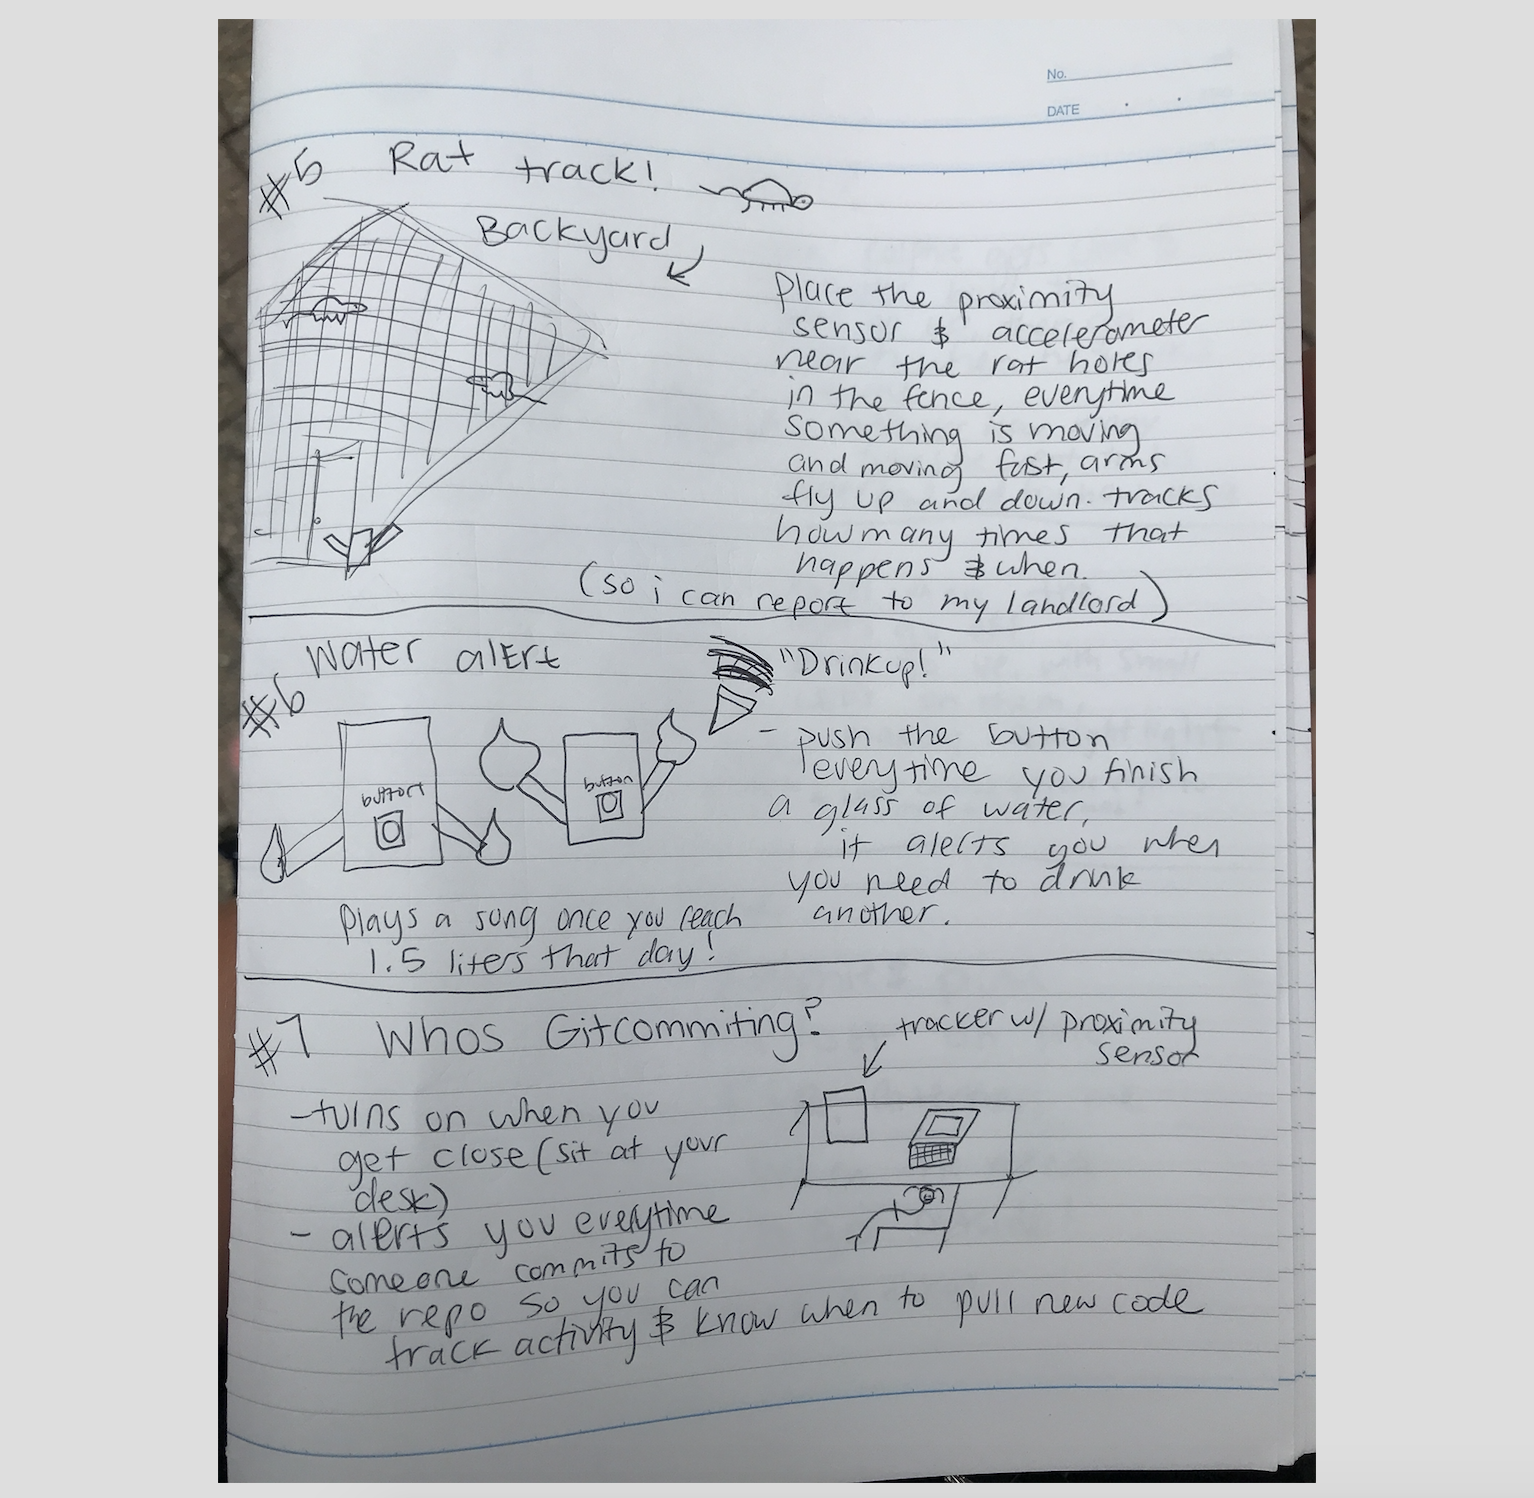 No.
DATE
#5 Rat track!
Backyard
Place the proximity
sensor & accelerometer
near the rat holes
in the fence, everytime
something is moving
and moving fast, arms
fly up and down. tracks
how many times that
happens & when.
(so i can report to my landlord)
#6 Water alert
"Drinkup!"
button
button
- push the button
everytime you finish
a glass of water,
it alerts you when
you need to drink
another.
plays a song once you reach
1.5 liters that day!
#7 Whos Gitcommiting?
tracker w/ proximity
sensor
- turns on when you
get close (sit at your
desk)
- alerts you everytime
someone commits to
the repo so you can
track activity & know when to pull new code